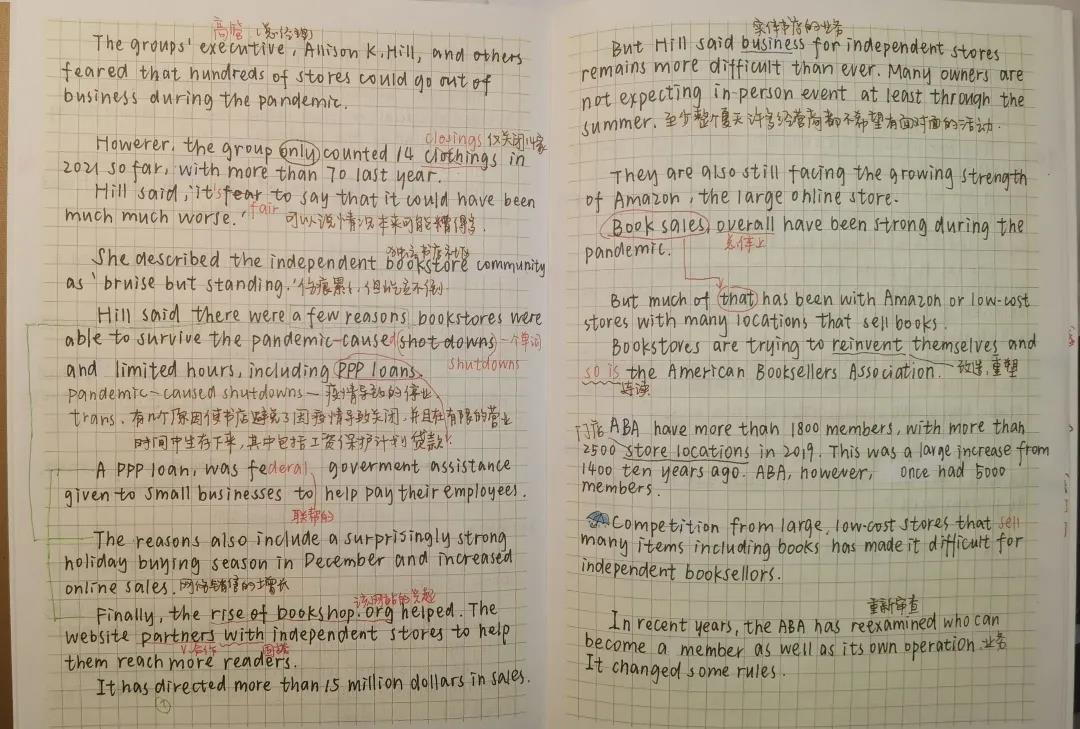 高管(总经理)
The groups' executive, Allison K. Hill, and others
feared that hundreds of stores could go out of
business during the pandemic.
closings 仅关闭14家
However, the group only counted 14 clothings in
2021 so far, with more than 70 last year.
Hill said, 'it's fear to say that it could have been
fair
much much worse.' 可以说情况本来可能糟得多.
独立书店社区
She described the independent bookstore community
as 'bruise but standing.' 伤痕累累,但屹立不倒.
Hill said there were a few reasons bookstores were
able to survive the pandemic-caused (shot downs) 一个单词
shutdowns
and limited hours, including PPP loans.
pandemic-caused shutdowns — 疫情导致的停业
trans. 有几个原因使书店避免了因疫情导致关闭,并且在有限的营业
时间中生存下来,其中包括工资保护计划贷款.
A PPP loan, was federal goverment assistance
given to small businesses to help pay their employees.
联帮的
The reasons also include a surprisingly strong
holiday buying season in December and increased
online sales. 网络销售的增长
该网站的兴起
Finally, the rise of bookshop.org helped. The
website partners with independent stores to help
v.合作
them reach more readers.
It has directed more than 15 million dollars in sales.
①
实体书店的业务
But Hill said business for independent stores
remains more difficult than ever. Many owners are
not expecting in-person event at least through the
summer. 至少整个夏天许多经营商都不希望有面对面的活动.
They are also still facing the growing strength
of Amazon, the large online store.
Book sales, overall have been strong during the
总体上
pandemic.
But much of that has been with Amazon or low-cost
stores with many locations that sell books.
Bookstores are trying to reinvent themselves and
so is the American Booksellers Association. 改造,重塑
连读
门店 ABA have more than 1800 members, with more than
2500 store locations in 2019. This was a large increase from
1400 ten years ago. ABA, however, once had 5000
members.
Competition from large, low-cost stores that sell
many items including books has made it difficult for
independent booksellors.
重新审查
In recent years, the ABA has reexamined who can
become a member as well as its own operation. 业务
It changed some rules.